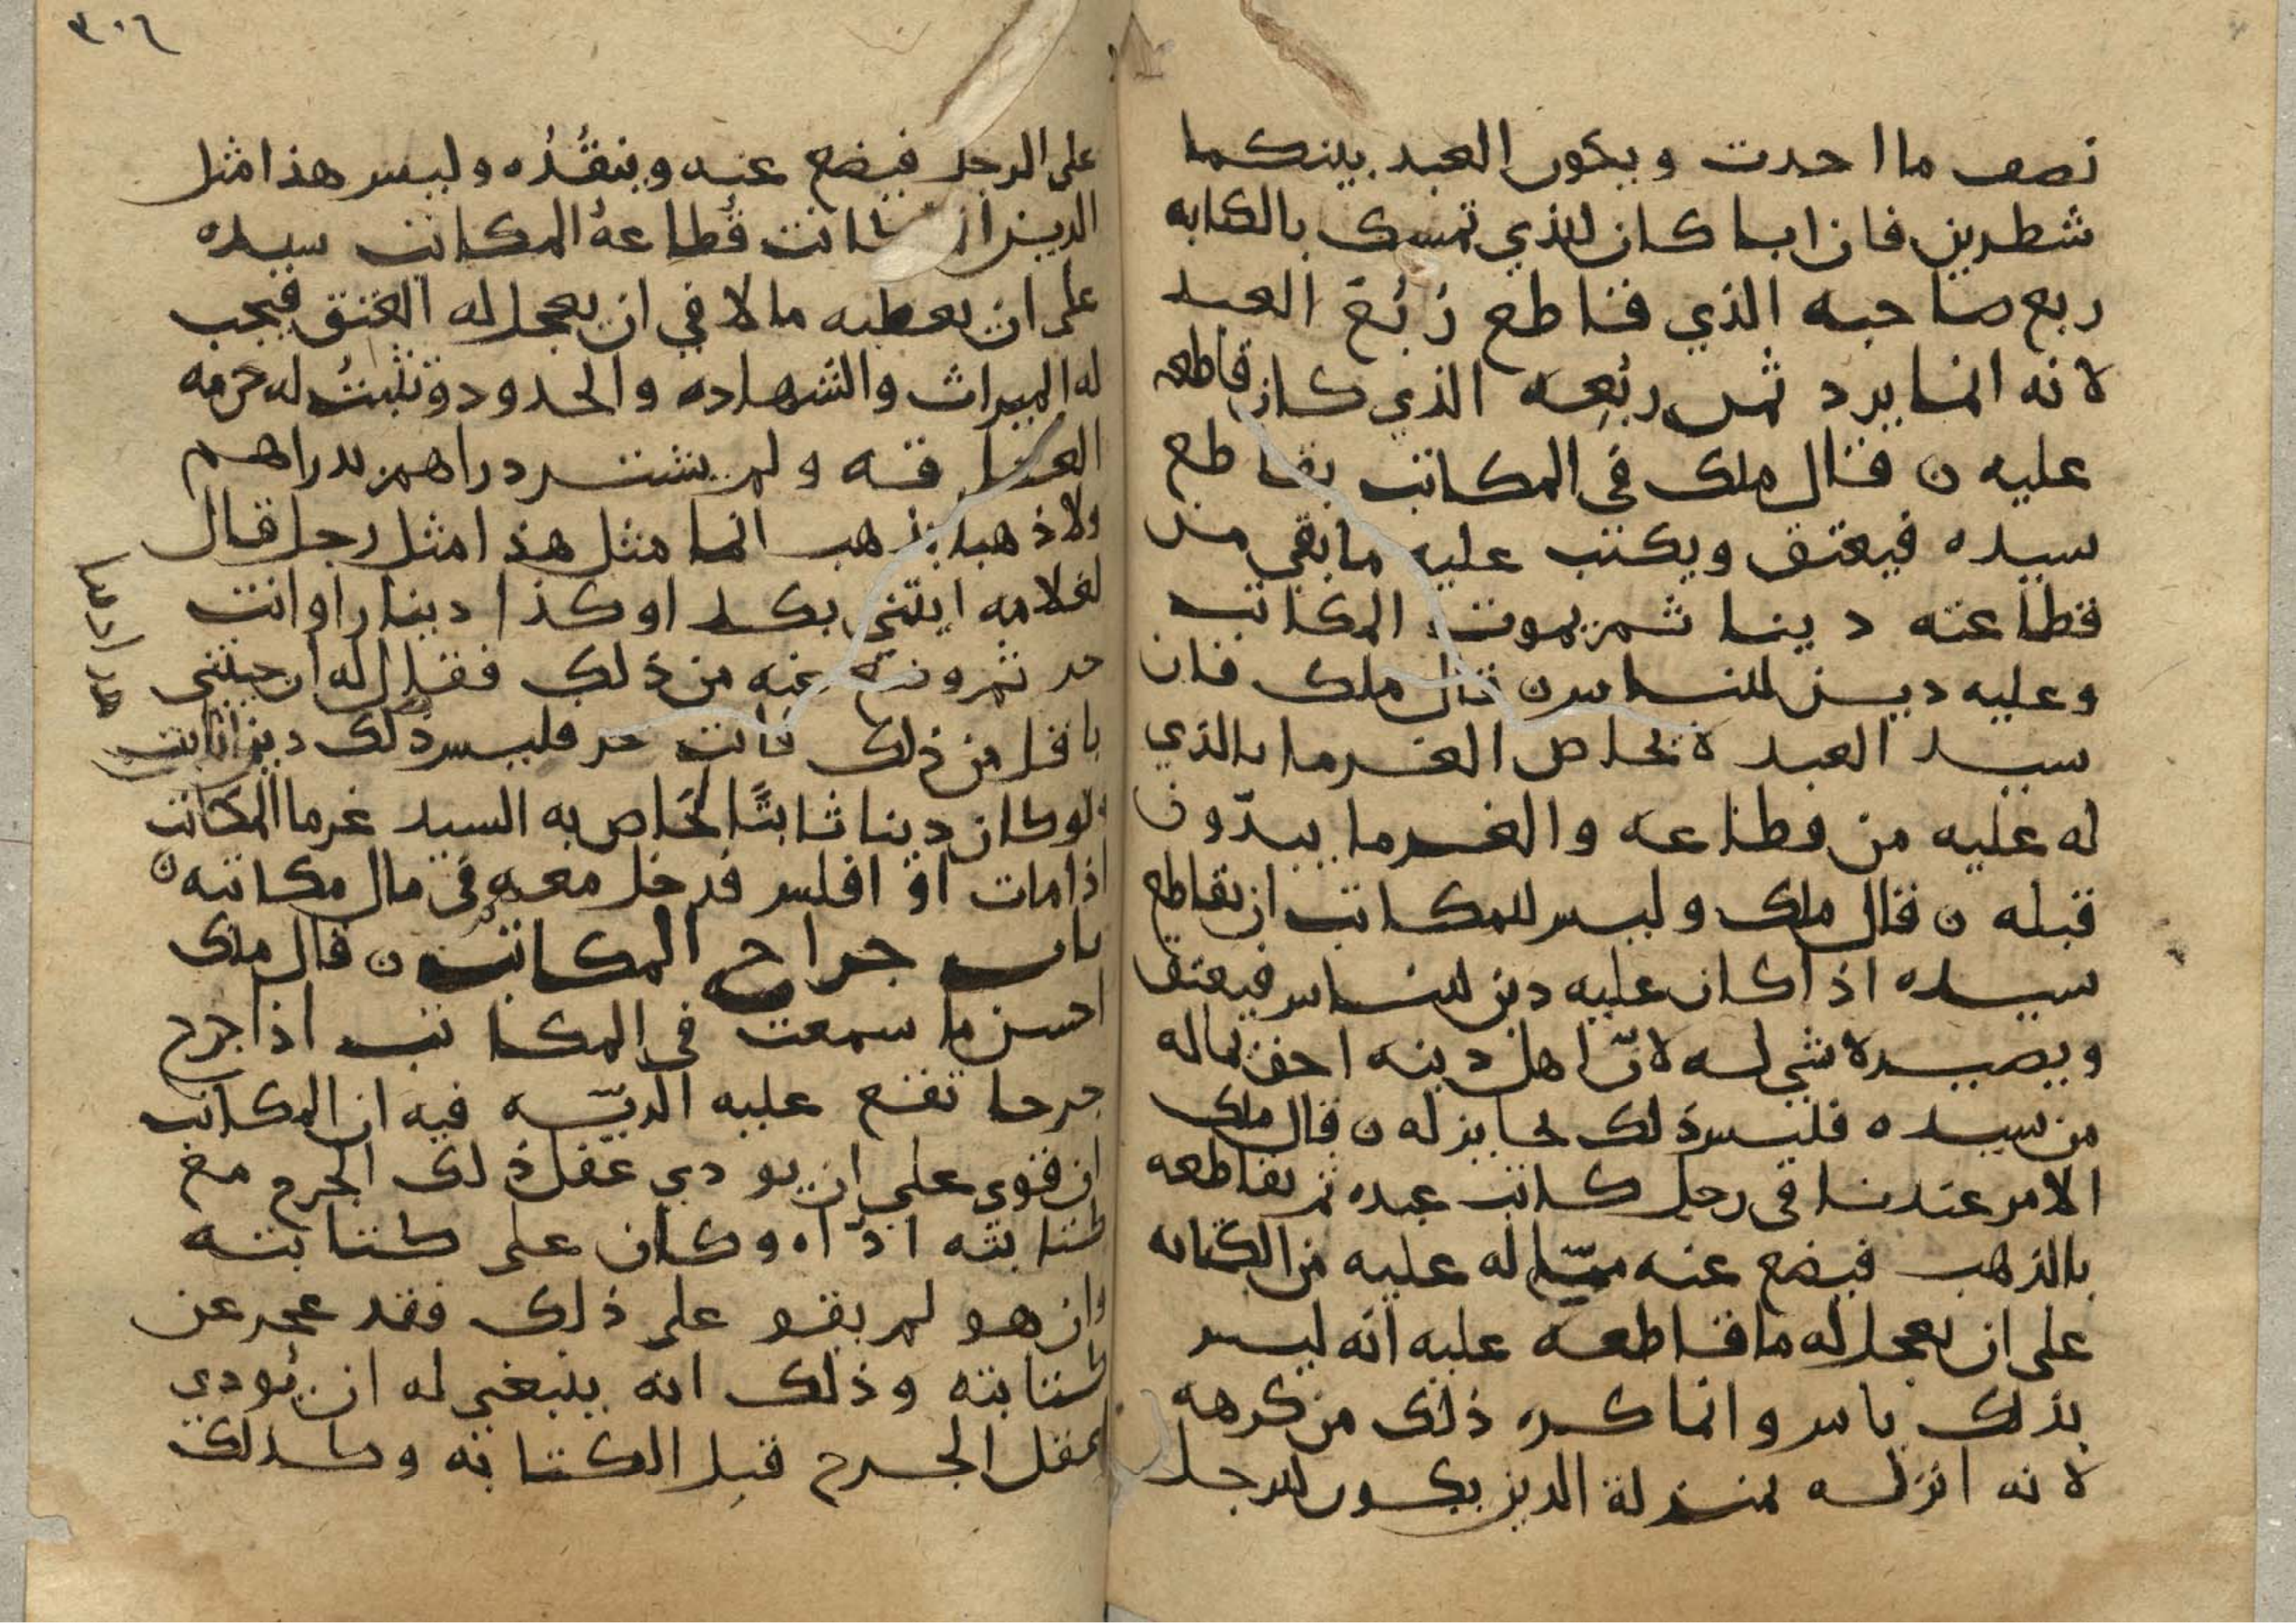 نصف ما اخدت ويكون العبد بينكما
شطرين فان ابا كان للذي تمسك بالكتابه
ربع صاحبه الذي قاطع رُبُعَ العبد
لانه انما يرد ثمن ربُعِه الذي كان قاطعه
عليه ن قال ملك في المكاتب يقاطع
سيده فيعتق ويكتب عليه ما بقي من
قطاعته دينا ثم يموت المكاتب
وعليه دين للناس ن قال ملك فان
سيد العبد لا يحاص الغرما بالذي
له عليه من قطاعه والغرما يبدّون
قبله ن قال ملك وليس للمكاتب ان يقاطع
سيده اذا كان عليه دين للناس فيعتق
ويصير لا شي له لانّ اهل دينه احق بماله
من سيده فليس ذلك بجايز له ن قال ملك
الامر عندنا في رجل كاتب عبده ثم يقاطعه
بالذهب فيضع عنه ممّا له عليه من الكتابه
على ان يعجل له ما قاطعه عليه انه ليس
بذلك باس وانما كره ذلك من كرهه
لانه انزله بمنزلة الدين يكون للرجل
٣٠٦
على الرجل فيضع عنه وينقُدُه وليس هذا مثل
الدين انما كانت قُطاعهُ المكاتب سيده
على ان يعطيه مالا في ان يعجل له العتق فيجب
له الميراث والشهاده والحدود وتثبتُ له حرمه
العتاقه ولم يشتر دراهم بدراهم
ولا ذهبا بذهب انما مثل هذا مثل رجل قال
لغلامه ايتني بكذا وكذا دينارا وانت
حر ثم وضع عنه من ذلك فقال له ان جيتني
باقل من ذلك فانت حر فليس ذلك دينا ثابت
ولو كان دينا ثابتًا لحاص به السيد غرما المكاتب
اذا مات او افلس فدخل معهم في مال مكاتبه ن
باب جراح المكاتب ن قال ملك
احسن ما سمعت في المكاتب اذا جرح
جرحا تقع عليه الديّه فيه ان المكاتب
ان قوي على ان يودي عقل ذلك الجرح مع
كتابته ادّاه وكان على كتابته
وان هو لم يقو على ذلك فقد عجز عن
كتابته وذلك انه ينبغي له ان يُودي
عقل الجرح قبل الكتابه وكذلك